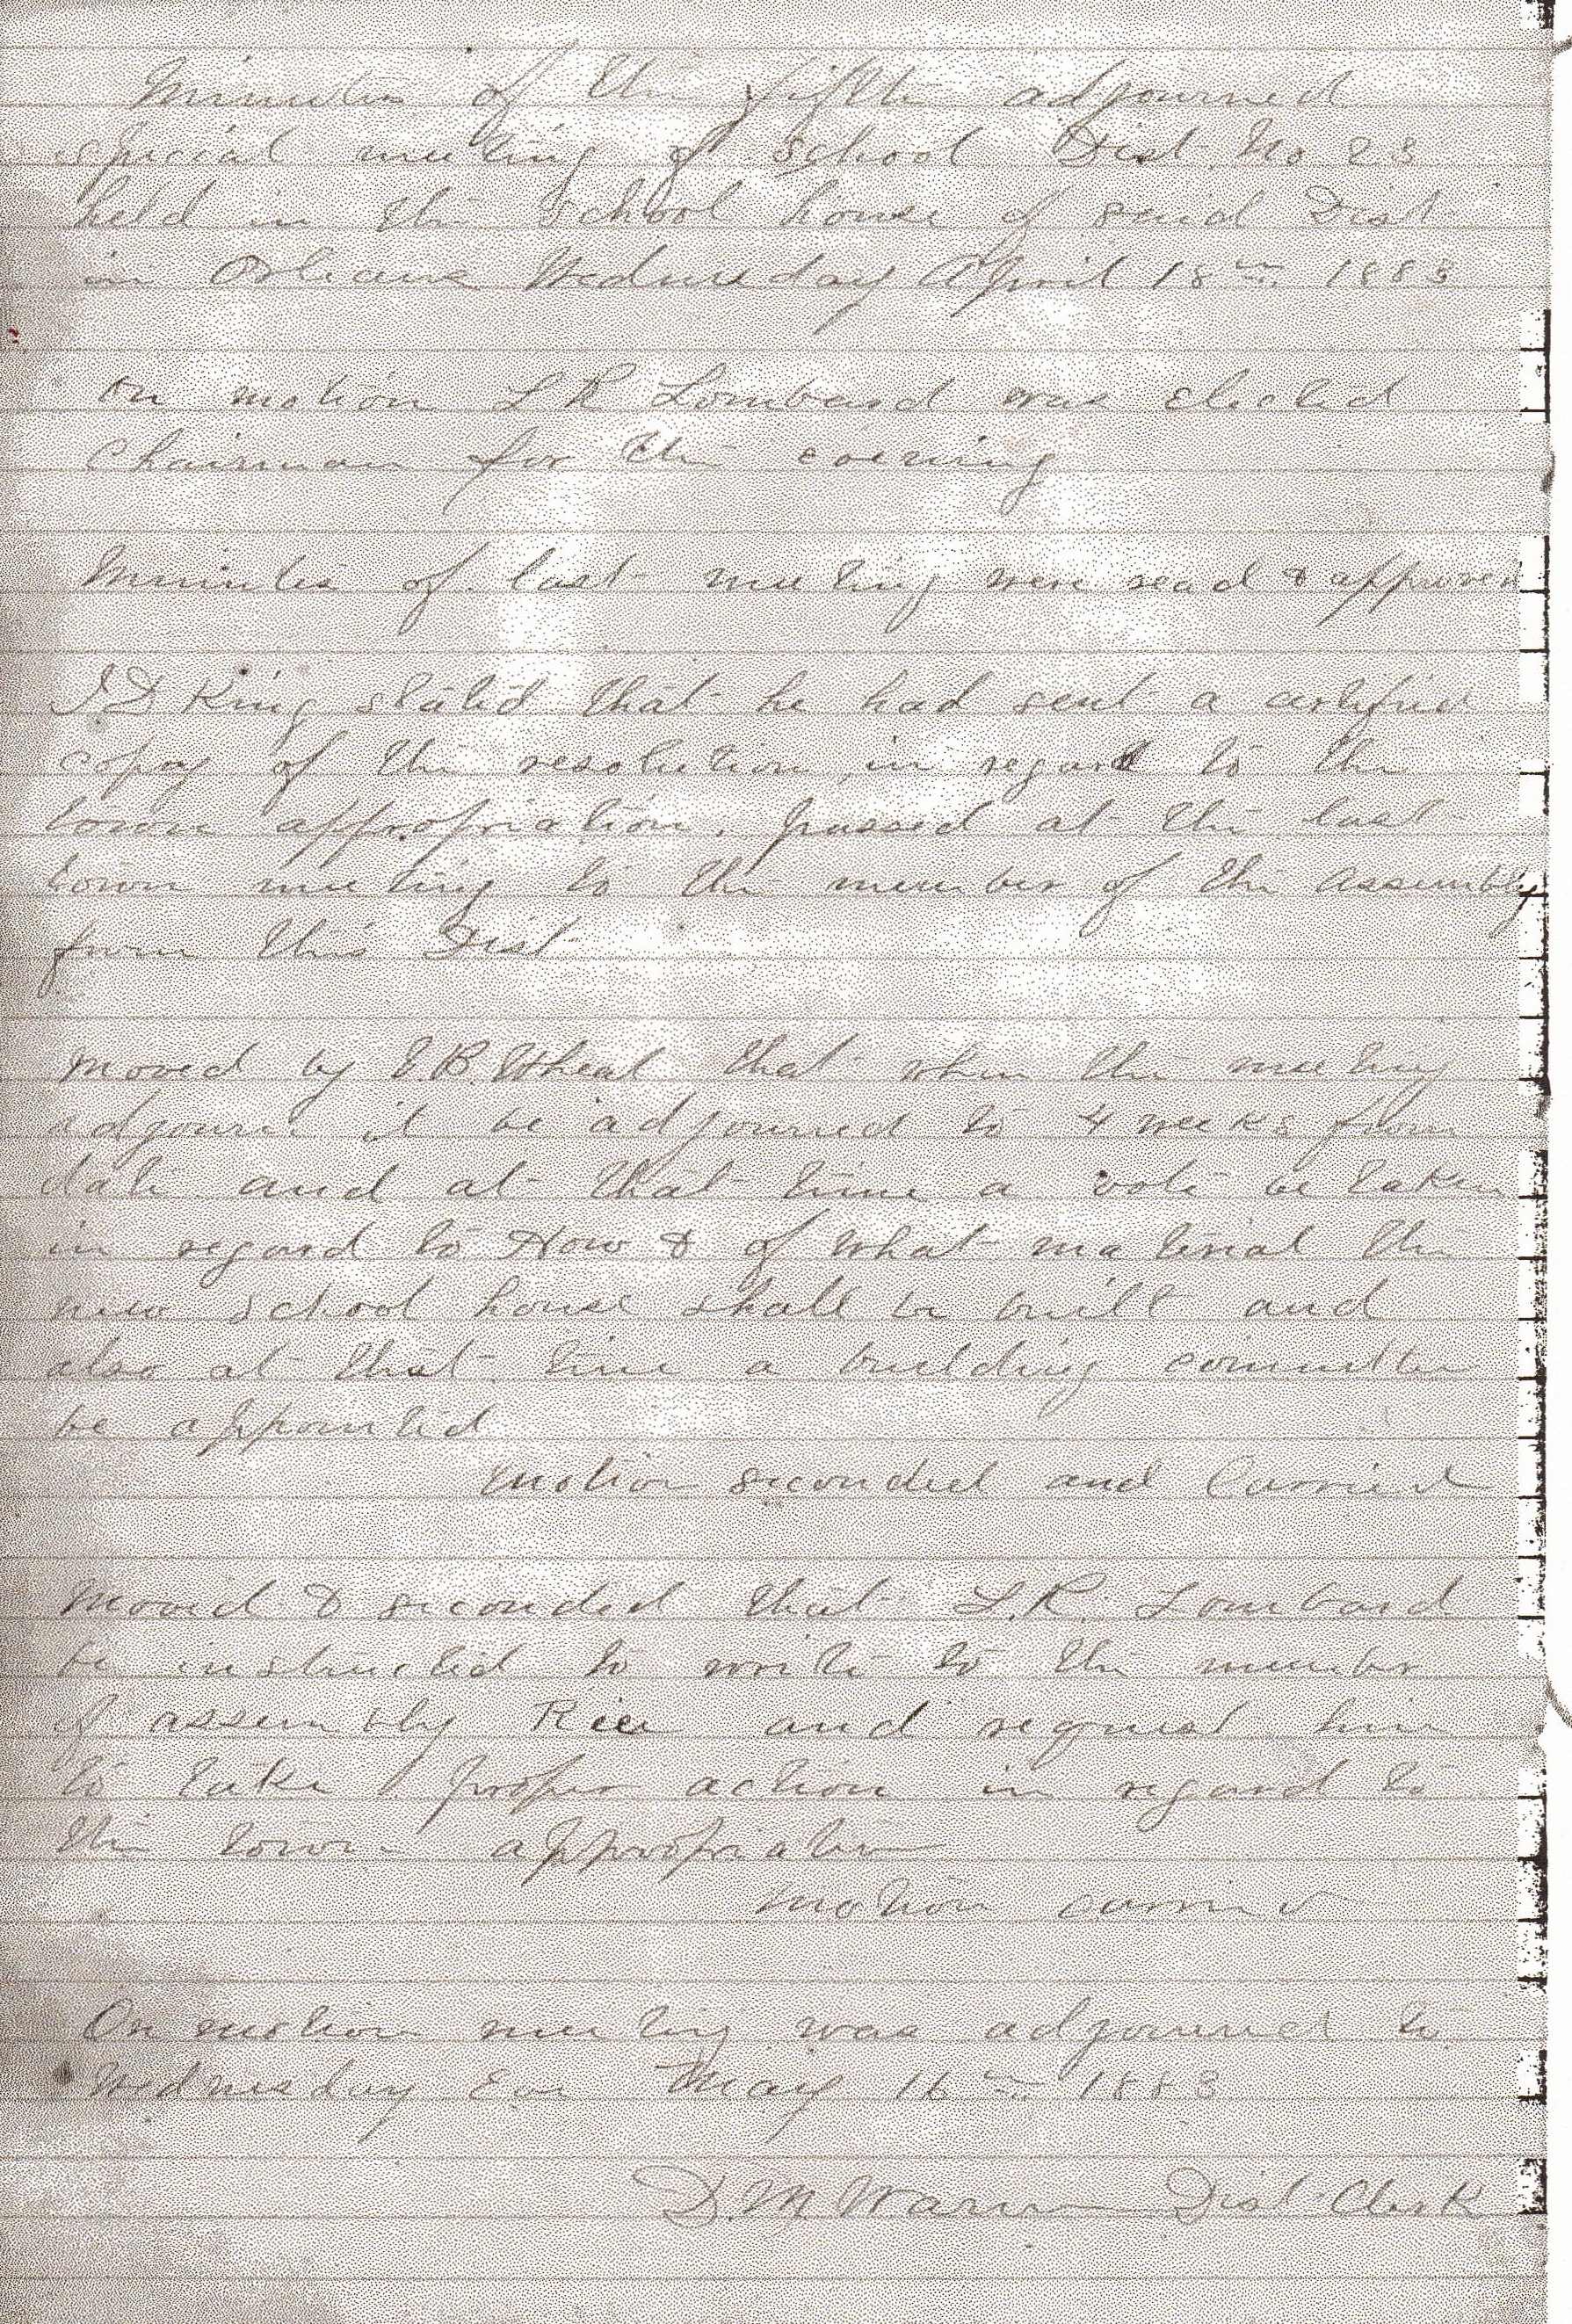 Minutes of the fifth adjourned
special meeting of school Dist No 23
held in the School house of said Dist
in Orleans Wednesday April 18th 1883
On motion L R Lombard was elected
Chairman for the evening
Minutes of last meeting were read & approved
I D King stated that he had sent a certified
copy of the resolution, in regard to the
town appropriation, passed at the last
town meeting to the member of the Assembly
from this Dist
Moved by E.B. Wheat that when the meeting
adjourn it be adjourned to 4 weeks from
date and at that time a vote be taken
in regard to How & of what material the
new school house shall be built and
also at that time a building committee
be appointed
Motion seconded and Carried
Moved & seconded that L.R. Lombard
be instructed to write to the member
of assembly Rice and request him
to take proper action in regard to
the town appropriation
Motion carried
On motion meeting was adjourned to
Wednesday Eve May 16th 1883
D. M. Dist Clerk